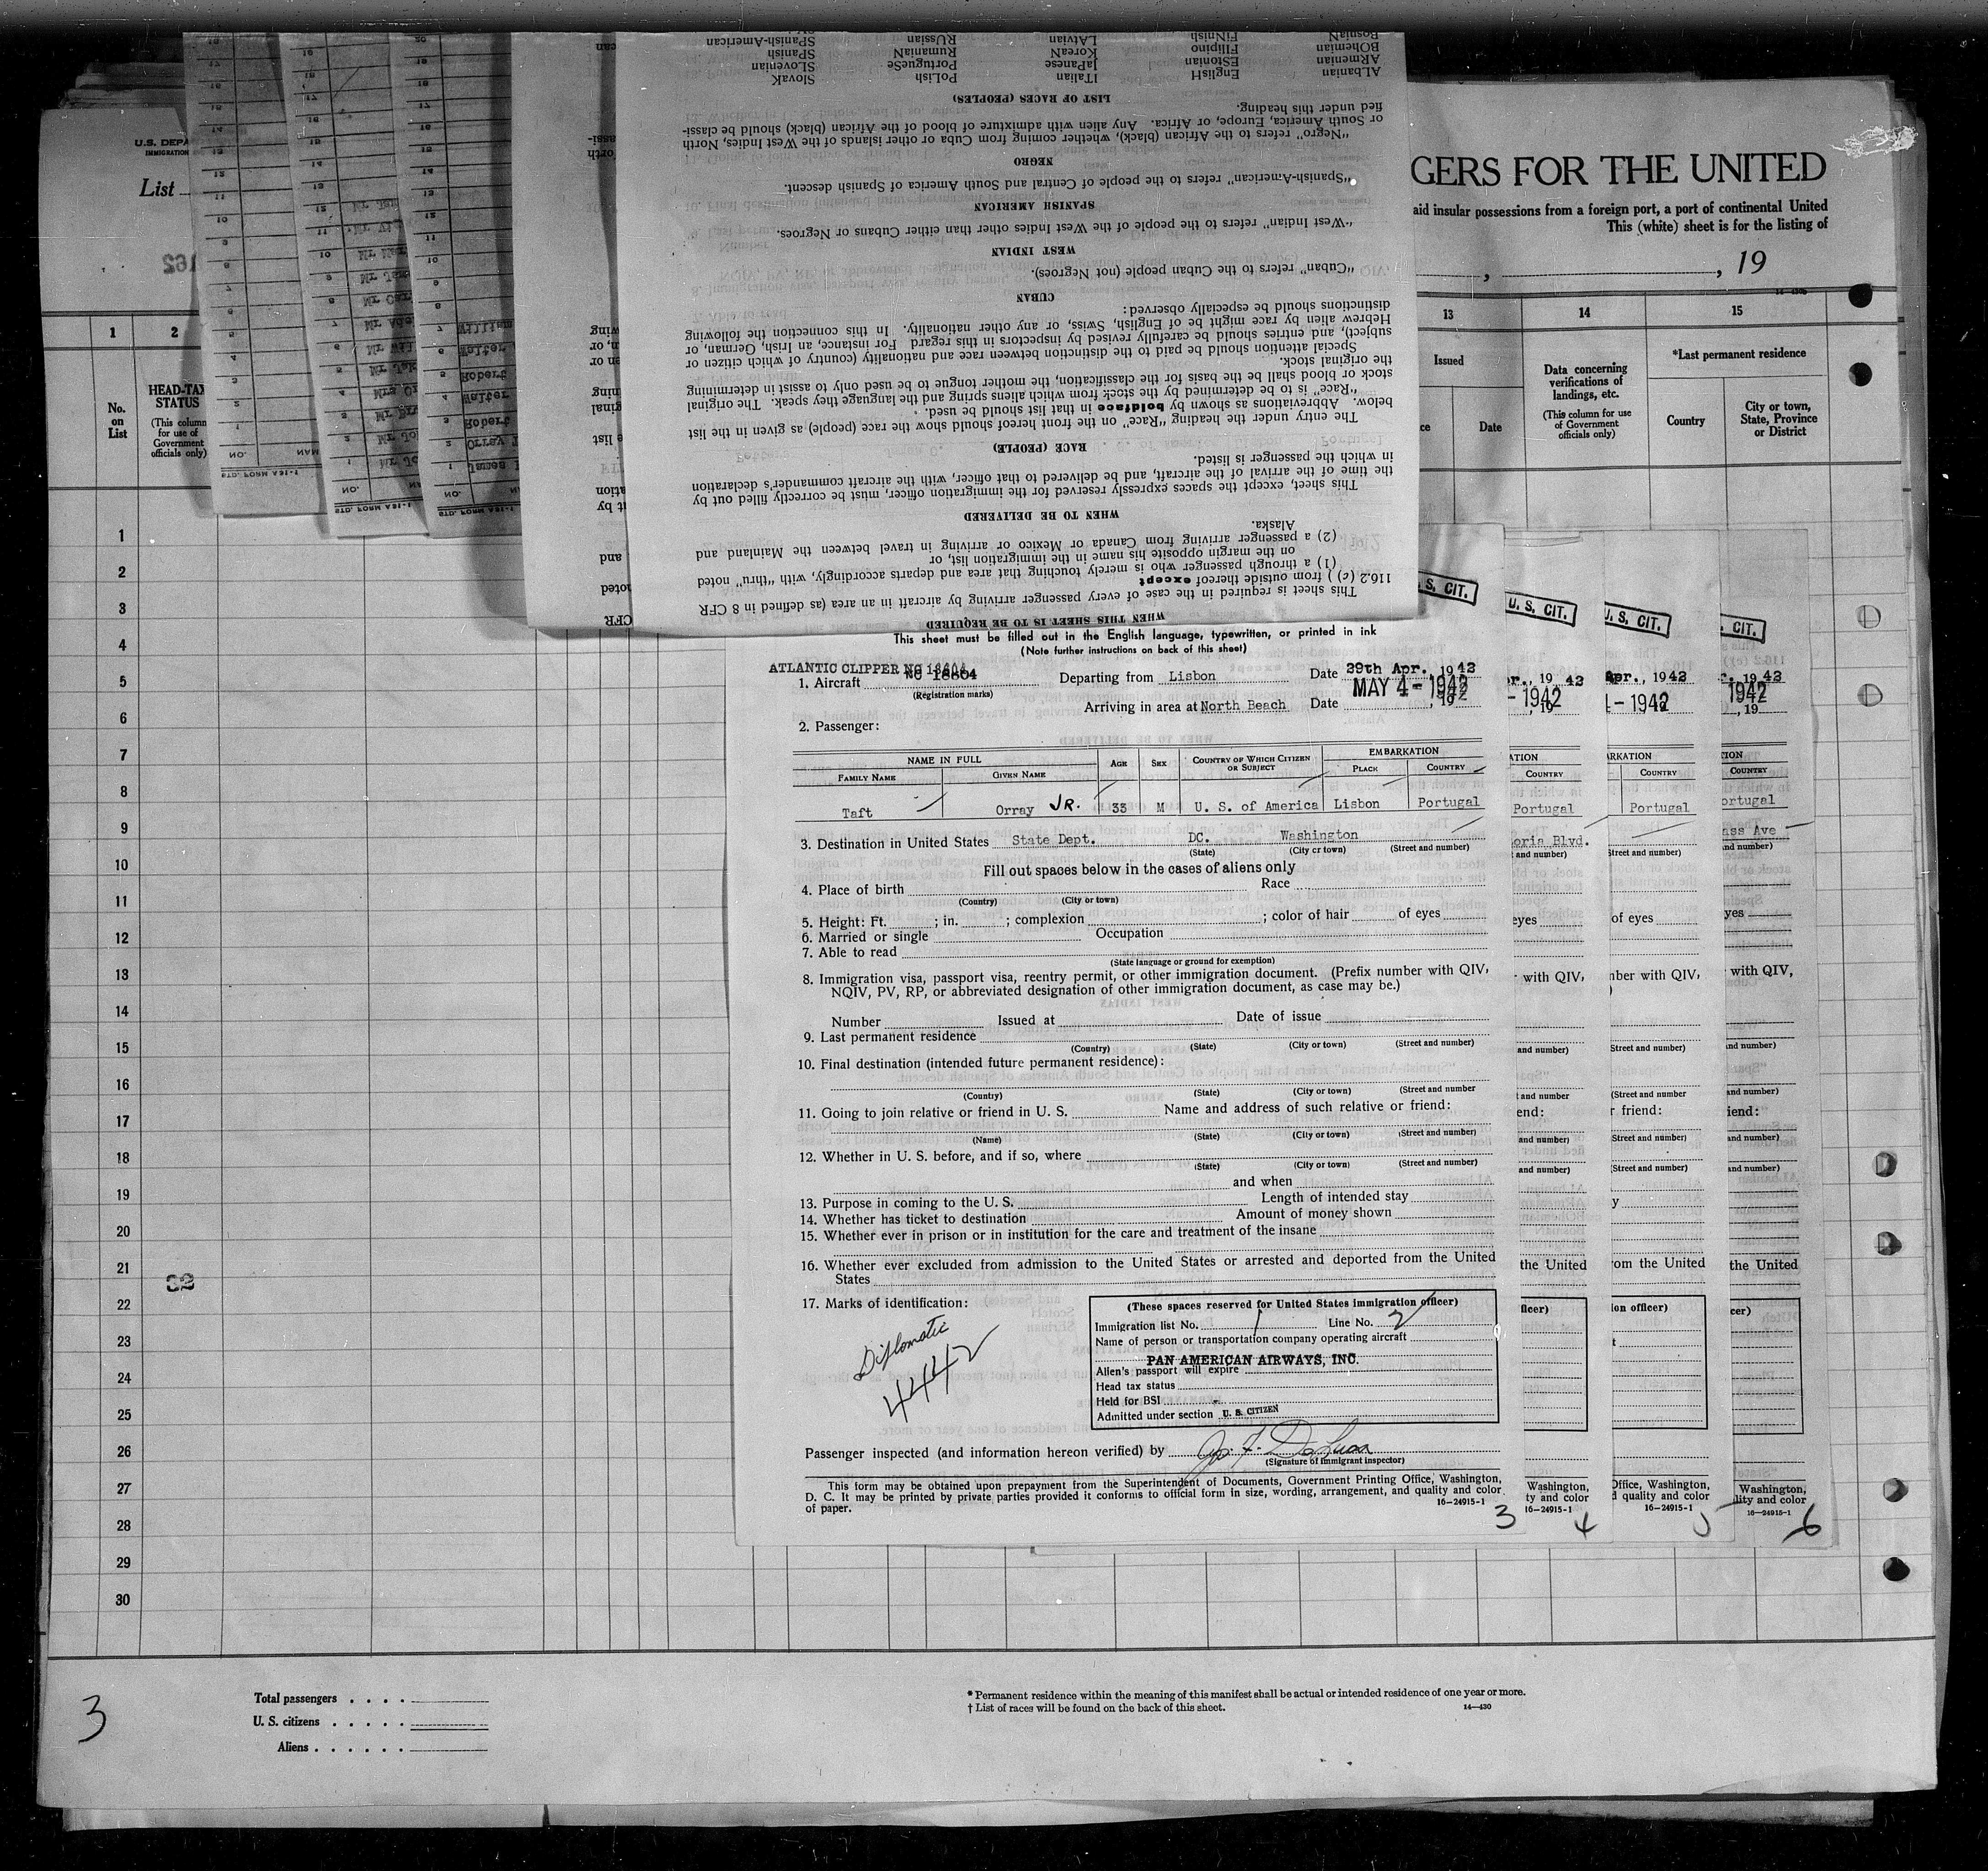 U.S. DEPA
IMMIGRATION
List
GERS FOR THE UNITED
aid insular possessions from a foreign port, a port of continental United
This (white) sheet is for the listing of
, 19
1
2
13
14
15
No. on List
HEAD-TAX STATUS
(This column for use of Government officials only)
Issued
Date
Data concerning verifications of landings, etc.
(This column for use of Government officials only)
*Last permanent residence
Country
City or town, State, Province or District
SlovaK
SLovenian
SPanisH
SPanish-American
PoLisH
PortugueSe
RumaniaN
RUssian
ITaliaN
JaPanese
KoreaN
LAtvian
EnglisH
EStonian
Filipino
FiNnish
ALbanian
ARmenian
BOhemian
BosniaN
LIST OF RACES (PEOPLES)
"Negro" refers to the African (black), whether coming from Cuba or other islands of the West Indies, North
or South America, Europe, or Africa. Any alien with admixture of blood of the African (black) should be classi-
fied under this heading.
NEGRO
"Spanish-American" refers to the people of Central and South America of Spanish descent.
SPANISH AMERICAN
"West Indian" refers to the people of the West Indies other than either Cubans or Negroes.
WEST INDIAN
"Cuban" refers to the Cuban people (not Negroes).
CUBAN
Special attention should be paid to the distinction between race and nationality (country of which citizen or
subject), and entries should be carefully revised by inspectors in this regard For instance, an Irish, German, or
Hebrew alien by race might be of English, Swiss, or any other nationality. In this connection the following
distinctions should be especially observed:
"Race" is to be determined by the stock from which aliens spring and the language they speak. The original
stock or blood shall be the basis for the classification, the mother tongue to be used only to assist in determining
the original stock.
The entry under the heading "Race" on the front hereof should show the race (people) as given in the list
below. Abbreviations as shown by boldface in that list should be used.
RACE (PEOPLE)
This sheet, except the spaces expressly reserved for the immigration officer, must be correctly filled out by
the time of the arrival of the aircraft, and be delivered to that officer, with the aircraft commander's declaration
in which the passenger is listed.
WHEN TO BE DELIVERED
(2) a passenger arriving from Canada or Mexico or arriving in travel between the Mainland and
Alaska.
(1) a through passenger who is merely touching that area and departs accordingly, with "thru" noted
on the margin opposite his name in the immigration list, or
This sheet is required in the case of every passenger arriving by aircraft in an area (as defined in 8 CFR
116.2 (c) ) from outside thereof except
WHEN THIS SHEET IS TO BE REQUIRED
This sheet must be filled out in the English language, typewritten, or printed in ink
(Note further instructions on back of this sheet)
ATLANTIC CLIPPER NC 18604
1. Aircraft NC 18604 Departing from Lisbon Date 29th Apr. 1942
(Registration marks)
MAY 4 - 1942
Arriving in area at North Beach Date , 19
2. Passenger:
NAME IN FULL
FAMILY NAME
GIVEN NAME
AGE
SEX
COUNTRY OF WHICH CITIZEN OR SUBJECT
EMBARKATION
PLACE
COUNTRY
Taft Orray JR. 33 M U. S. of America Lisbon Portugal
3. Destination in United States State Dept. DC. Washington
(State) (City or town) (Street and number)
Fill out spaces below in the cases of aliens only
4. Place of birth Race
(Country) (City or town)
5. Height: Ft. ; in. ; complexion ; color of hair of eyes
6. Married or single Occupation
7. Able to read
(State language or ground for exemption)
8. Immigration visa, passport visa, reentry permit, or other immigration document. (Prefix number with QIV,
NQIV, PV, RP, or abbreviated designation of other immigration document, as case may be.)
Number Issued at Date of issue
9. Last permanent residence
(Country) (State) (City or town) (Street and number)
10. Final destination (intended future permanent residence):
(Country) (State) (City or town) (Street and number
11. Going to join relative or friend in U. S. Name and address of such relative or friend:
(Name) (State) (City or town) (Street and number)
12. Whether in U. S. before, and if so, where
(State) (City or town) (Street and number)
and when
13. Purpose in coming to the U. S. Length of intended stay
14. Whether has ticket to destination Amount of money shown
15. Whether ever in prison or in institution for the care and treatment of the insane
16. Whether ever excluded from admission to the United States or arrested and deported from the United
States
17. Marks of identification:
Diplomatic
4442
(These spaces reserved for United States immigration officer)
Immigration list No. 1 Line No. 2
Name of person or transportation company operating aircraft
PAN AMERICAN AIRWAYS, INC.
Alien's passport will expire
Head tax status
Held for BSI
Admitted under section U. S. CITIZEN
Passenger inspected (and information hereon verified) by
(Signature of immigrant inspector)
This form may be obtained upon prepayment from the Superintendent of Documents, Government Printing Office, Washington,
D. C. It may be printed by private parties provided it conforms to official form in size, wording, arrangement, and quality and color
of paper. 16—24915-1
3
4
5
6
S. CIT.
U. S. CIT.
U. S. CIT.
. CIT.
1
2
3
4
5
6
7
8
9
10
11
12
13
14
15
16
17
18
19
20
21
22
23
24
25
26
27
28
29
30
32
3
Total passengers
U. S. citizens
Aliens
* Permanent residence within the meaning of this manifest shall be actual or intended residence of one year or more.
† List of races will be found on the back of this sheet. 14—430